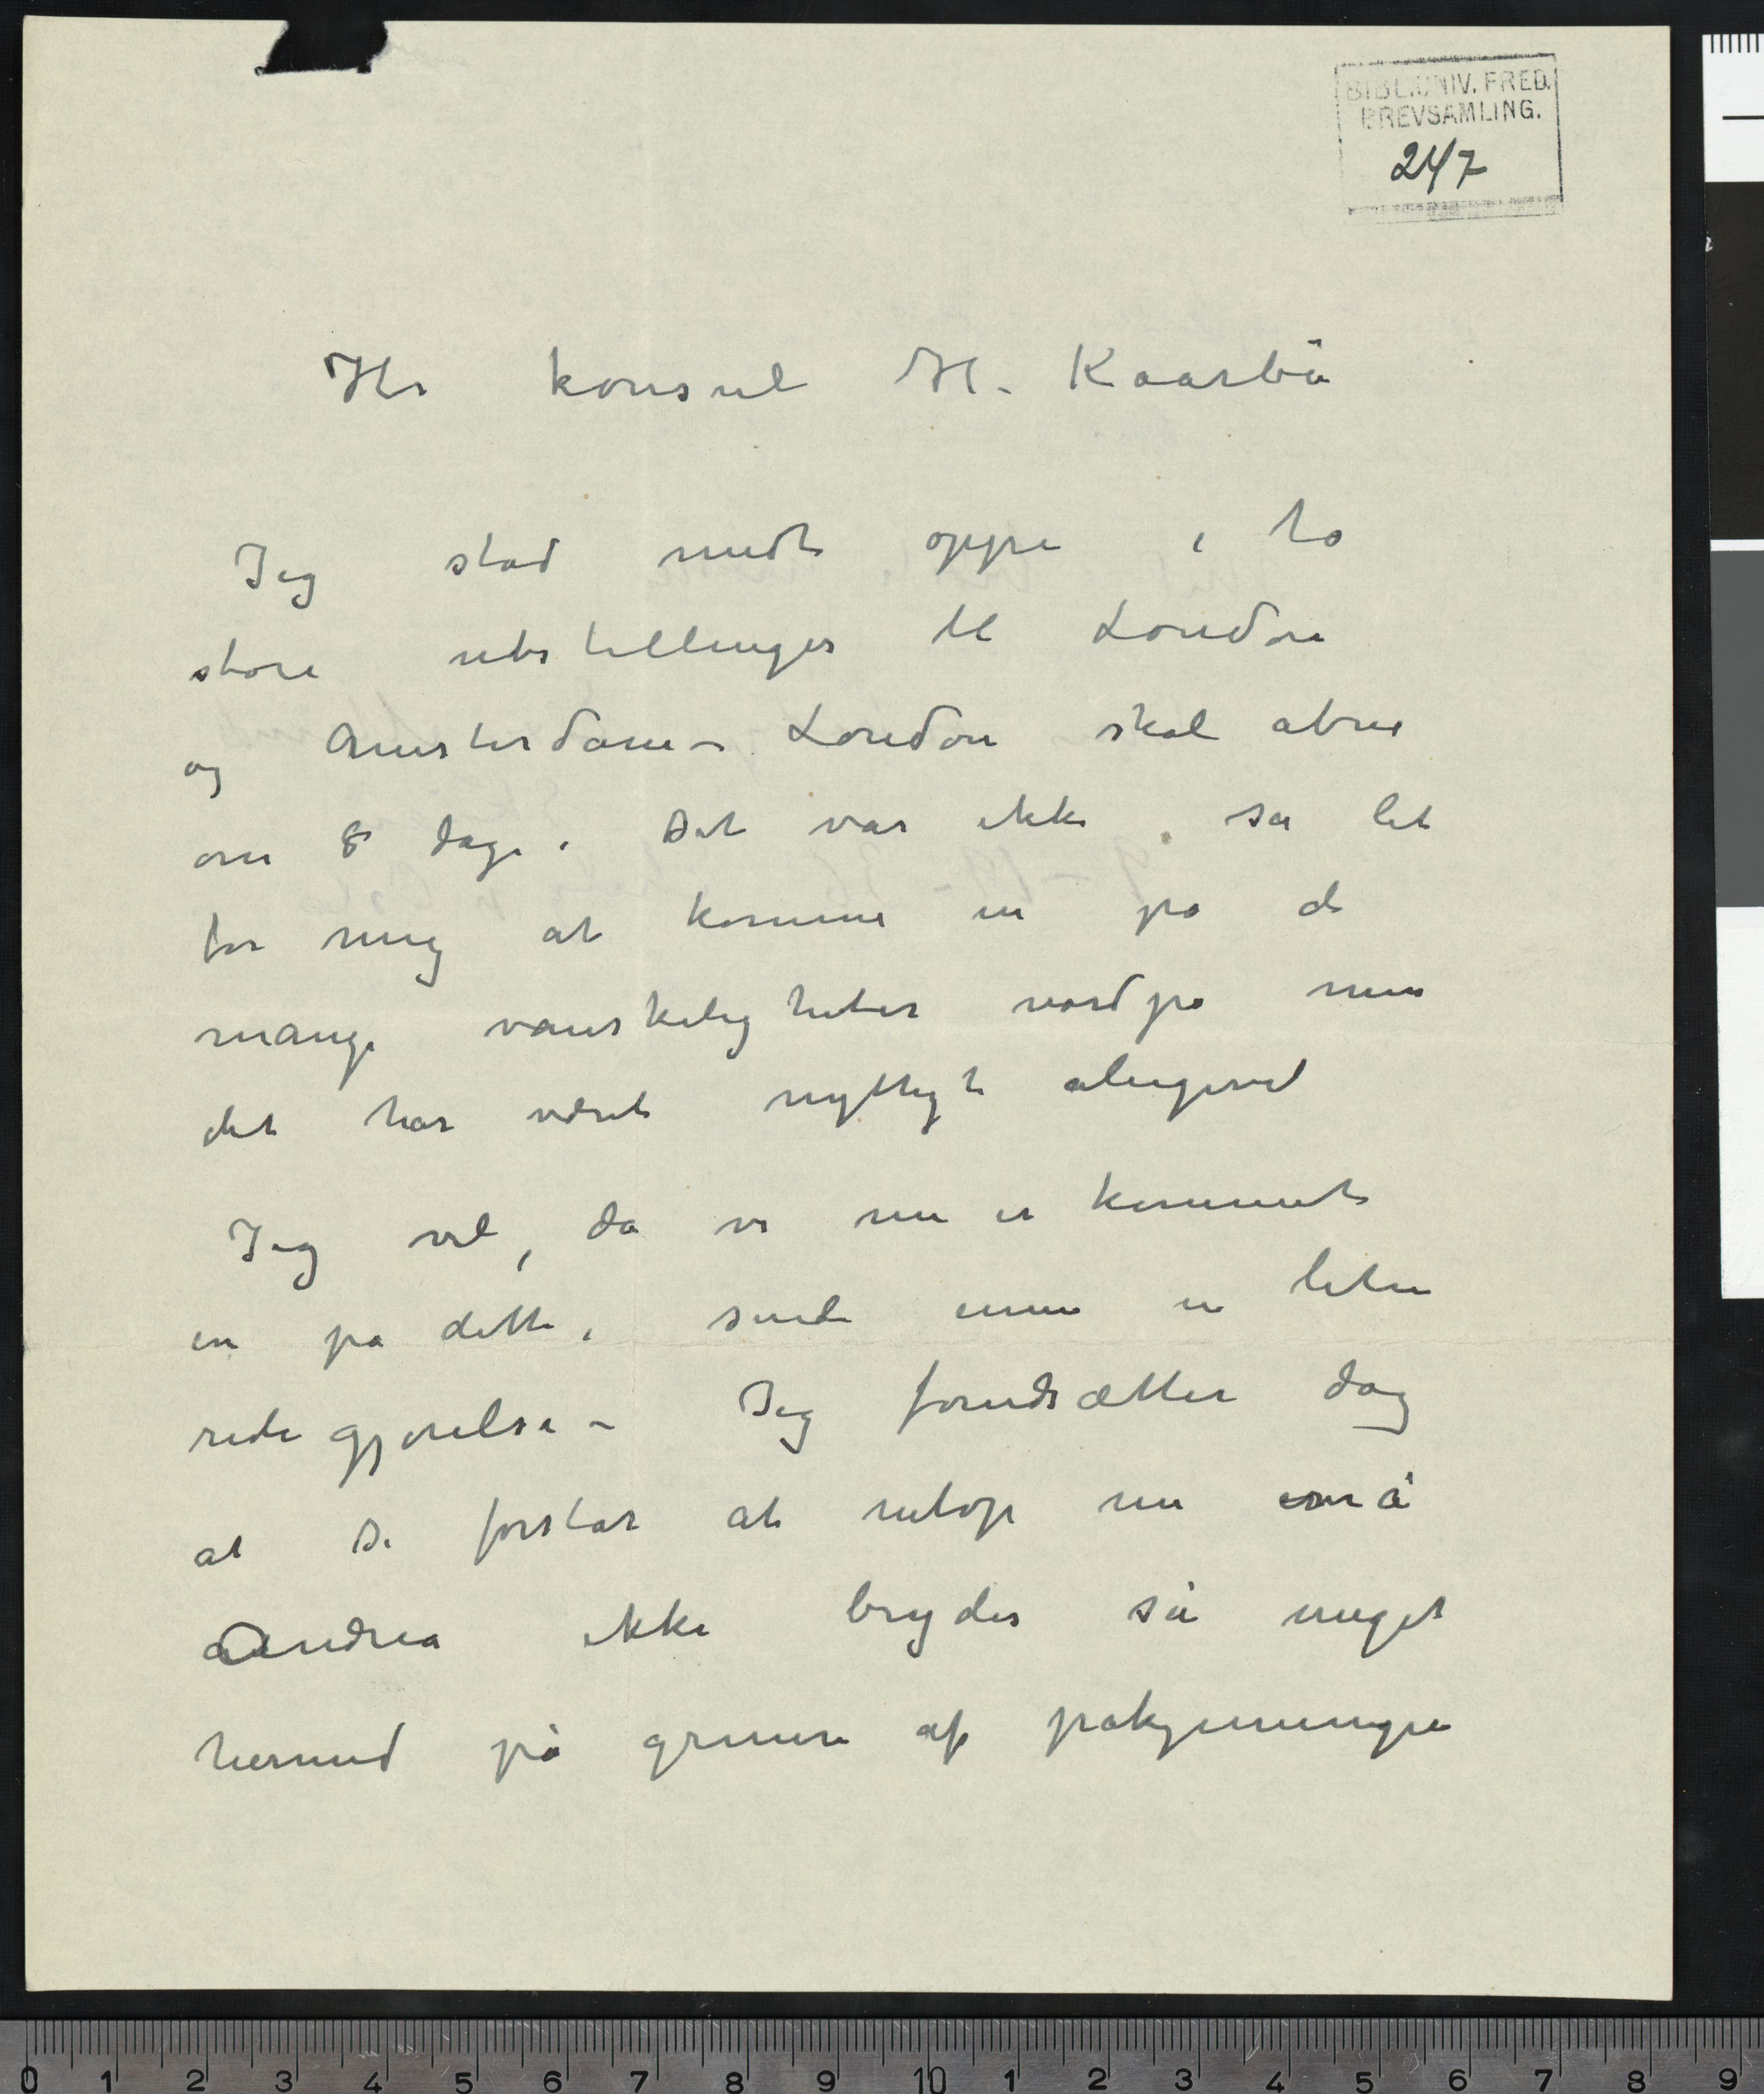 BIBL.UNIV. FRED.
BREVSAMLING.
247
Hr konsul H. Kaarbö
Jeg stod midt oppe i to
store utstillinger til London
og Amsterdam – London skal åbne
om 8 dage. Det var ikke så let
for mig at komme in på de
mange vanskeligheter nordpå men
det har været nyttigt alligevel
Jeg vil, da vi nu er kommet
in på dette, sende ennu en liten
redegjørelse – Jeg forudsætter dog
at De forstår at netop nu må
Andrea ikke brydes så meget
hermed på grunn af påkjenningen
0 1 2 3 4 5 6 7 8 9 10 1 2 3 4 5 6 7 8 9